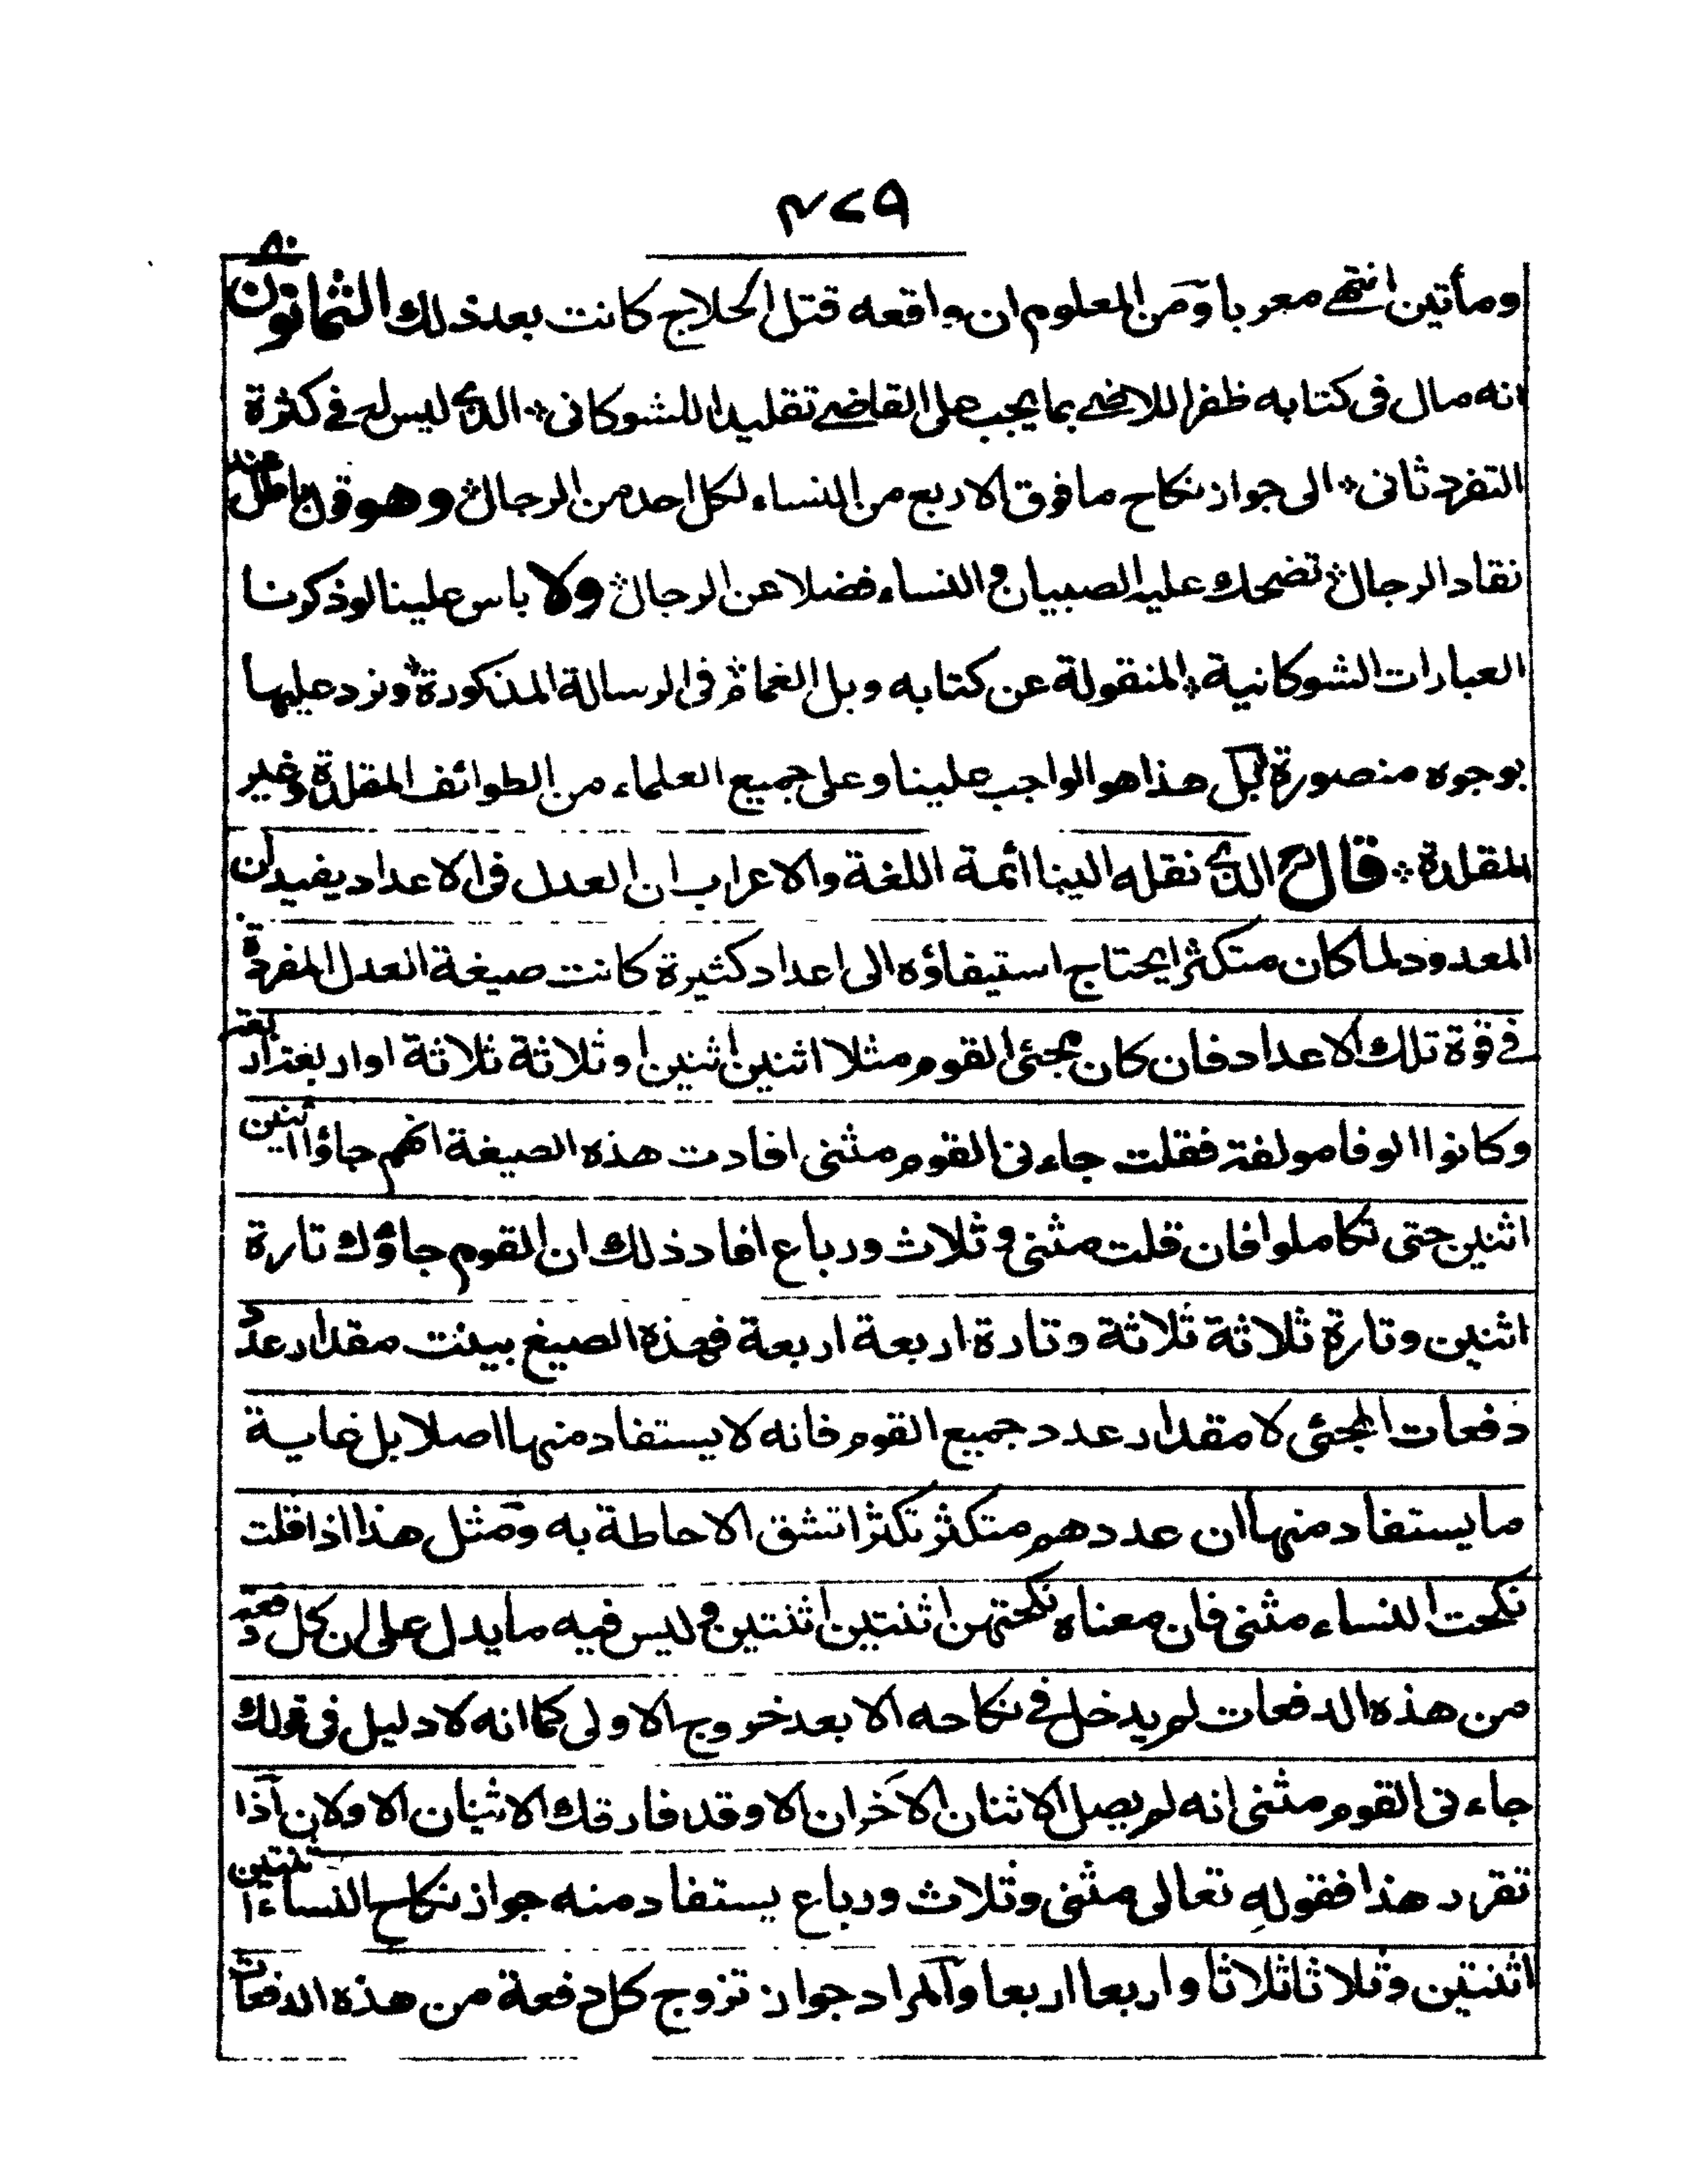 ٤٧٩
٨٠
ومأتين انتهى معربا ومن المعلوم ان واقعه قتل الحلاج كانت بعد ذلك الثمانون
انه مال فى كتابه ظفر اللاضى بما يجب على القاضى تقليدا للشوكانى الذى ليس له فى كثرة
التفرد ثانى الى جواز نكاح ما فوق الاربع من النساء لكل احد من الرجال وهو قول باطل عند
نقاد الرجال تضحك عليه الصبيان والنساء فضلا عن الرجال ولا باس علينا لو ذكرنا
العبارات الشوكانية المنقولة عن كتابه وبل الغمام فى الرسالة المذكورة ونرد عليها
بوجوه منصورة بل هذا هو الواجب علينا وعلى جميع العلماء من الطوائف المقلدة وغير
المقلدة قال الذى نقله الينا أئمة اللغة والاعراب ان العدل فى الاعداد يفيد ان
المعدود لما كان متكثرا يحتاج استيفاؤه الى اعداد كثيرة كانت صيغة العدل المفردة
فى قوة تلك الاعداد فان كان مجئى القوم مثلا اثنين اثنين او ثلاثة ثلاثة او اربعة اربعة
وكانوا الوفا مولفة فقلت جاءنى القوم مثنى افادت هذه الصيغة انهم جاؤا اثنين
اثنين حتى تكاملوا فان قلت مثنى وثلاث ورباع افاد ذلك ان القوم جاؤك تارة
اثنين وتارة ثلاثة ثلاثة وتارة اربعة اربعة فهذه الصيغ بينت مقدار عدد
دفعات المجئى لا مقدار عدد جميع القوم فانه لا يستفاد منها اصلا بل غاية
ما يستفاد منها ان عددهم متكثر تكثرا تشق الاحاطة به ومثل هذا اذا قلت
نكحت النساء مثنى فان معناه نكحتهن اثنتين اثنتين وليس فيه ما يدل على ان كل دفعة
من هذه الدفعات لم يدخل فى نكاحه الا بعد خروج الاولى كما انه لا دليل فى قولك
جاءنى القوم مثنى انه لم يصل الاثنان الاخران الا وقد فارقك الاثنان الاولان اذا
تقرر هذا فقوله تعالى مثنى وثلاث ورباع يستفاد منه جواز نكاح النساء اثنتين
اثنتين وثلاثا ثلاثا واربعا اربعا والمراد جواز تزوج كل دفعة من هذه الدفعات